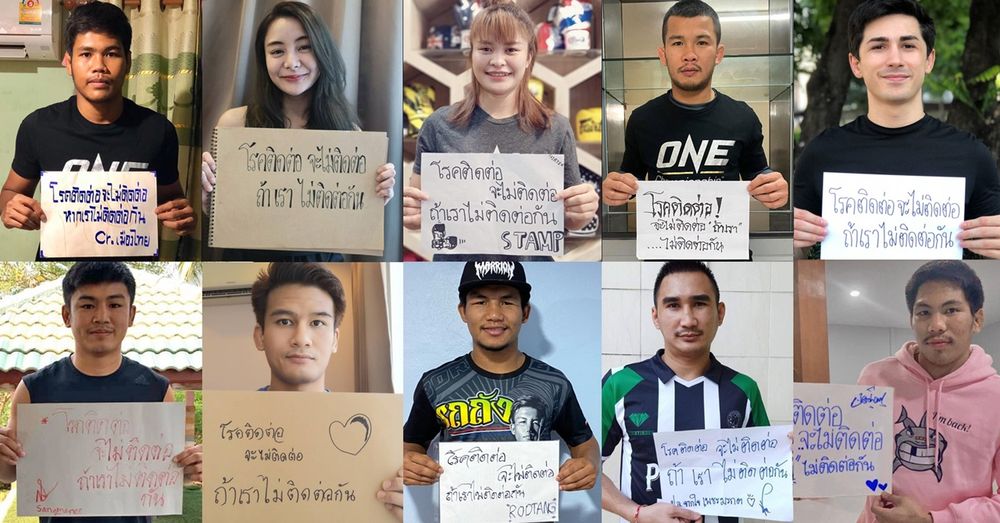 ONE
โรคติดต่อจะไม่ติดต่อ
หากเราไม่ติดต่อกัน
Cr. เมืองไทย
โรคติดต่อ จะไม่ติดต่อ
ถ้าเรา ไม่ติดต่อกัน
โรคติดต่อ
จะไม่ติดต่อ
ถ้าเราไม่ติดต่อกัน
STAMP
ONE
Championship
โรคติดต่อ!
จะไม่ติดต่อ "ถ้าเรา"
....ไม่ติดต่อกัน
โรคติดต่อ จะไม่ติดต่อ
ถ้าเราไม่ติดต่อกัน
โรคติดต่อ
จะไม่ติดต่อ
ถ้าเราไม่ติดต่อ
กัน
Sangmanee
โรคติดต่อ
จะไม่ติดต่อ
ถ้าเราไม่ติดต่อกัน
WARRIOR
รถถัง
โรคติดต่อ
จะไม่ติดต่อ
ถ้าเราไม่ติดต่อกัน
RODTANG
โรคติดต่อ จะไม่ติดต่อ
ถ้า เรา ไม่ ติดต่อกัน
I'm back!
ติดต่อ
จะไม่ติดต่อ
ไม่ติดต่อกัน